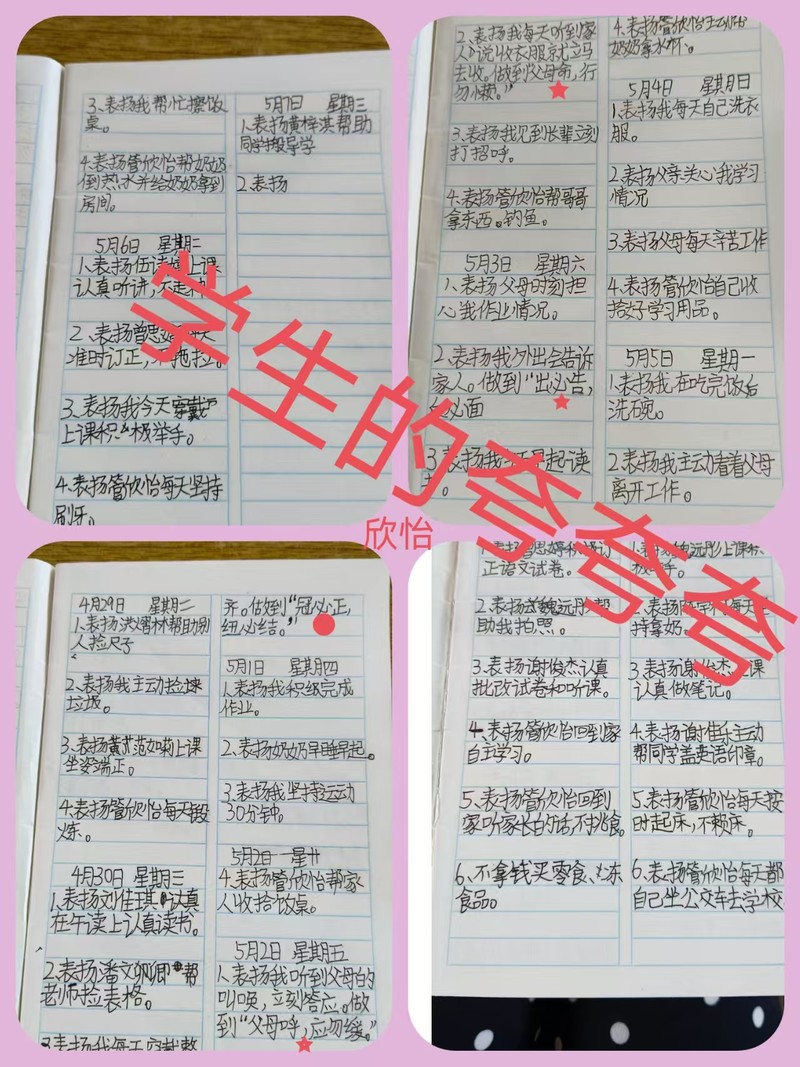 3、表扬我帮忙擦饭
桌。
4.表扬管欣怡帮奶奶
倒热水并给奶奶拿到
房间。
5月6日 星期二
1.表扬伍读婷上课
认真听讲,不走神
2、表扬曾思
准时订正,不拖拉。
3、表扬我今天穿戴
上课积极举手。
4.表扬管欣怡每天坚持
刷牙。
5月7日 星期三
1.表扬黄梓淇帮助
同学报导学
2.表扬
2.表扬我每天听到家
人说收衣服就立马
去收。做到"父母命,行
勿懒。"
3、表扬我见到长辈立刻
打招呼。
4、表扬管欣怡帮哥哥
拿东西。钓鱼。
5月3日 星期六
1、表扬父母时刻担
心我作业情况。
2、表扬我外出会告诉
家人。做到"出必告,
必面
3、表扬我 早起读
4.表扬管欣怡主动帮
奶奶拿水杯。
5月4日 星期日
1.表扬我每天自己洗衣
服。
2.表扬父亲关心我学习
情况
3.表扬父母每天辛苦工作
4.表扬管欣怡自己收
拾好学习用品。
5月5日 星期一
1.表扬我在吃完饭后
洗碗。
2.表扬我主动看着父母
离开工作。
学生的夸夸夸
欣怡
4月29日 星期二
1.表扬洪熠林帮助别
人捡尺子
2、表扬我主动捡
垃圾。
3、表扬黄范如莉上课
坐姿端正。
4、表扬管欣怡每天锻
炼。
4月30日 星期三
1、表扬刘佳琪认真
在午读上认真读书。
2.表扬潘文卿帮
老师捡表格。
3.表扬我每天穿戴整
齐。做到"冠必正,
纽必结。"
5月1日 星期四
1.表扬我积极完成
作业。
2、表扬奶奶早睡早起。
3、表扬我坚持运动
30分钟。
5月2日 星
4、表扬管欣怡帮家
人收拾饭桌。
5月2日 星期五
1、表扬我听到父母的
叫唤,立刻答应。做
到"父母呼,应勿缓。"
正语文试卷。
2.表扬魏远彤帮
助我拍照。
3、表扬谢俊杰认真
批改试卷和听课。
4、表扬管欣怡回到家
自主学习。
5、表扬管欣怡回到
家听家长的话,不挑食。
6、不拿钱买零食、冰冻
食品。
1.表扬魏远彤上课积
极举手。
持拿奶。
3、表扬谢俊杰上课
认真做笔记。
4、表扬谢佳乐主动
帮同学盖英语印章。
5、表扬管欣怡每天按
时起床,不赖床。
6、表扬管欣怡每天都
自己坐公交车去学校